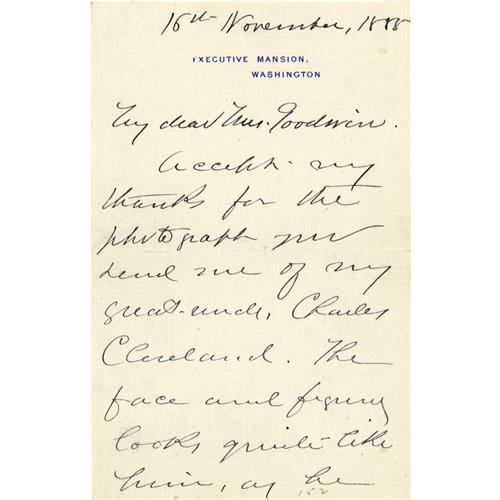 16th November, 1885
EXECUTIVE MANSION.
WASHINGTON
My dear Mrs. Goodwin.
Accept my
thanks for the
photograph you
send me of my
great-uncle, Charles
Cleveland. The
face and figure
looks quite like
him, as he
152